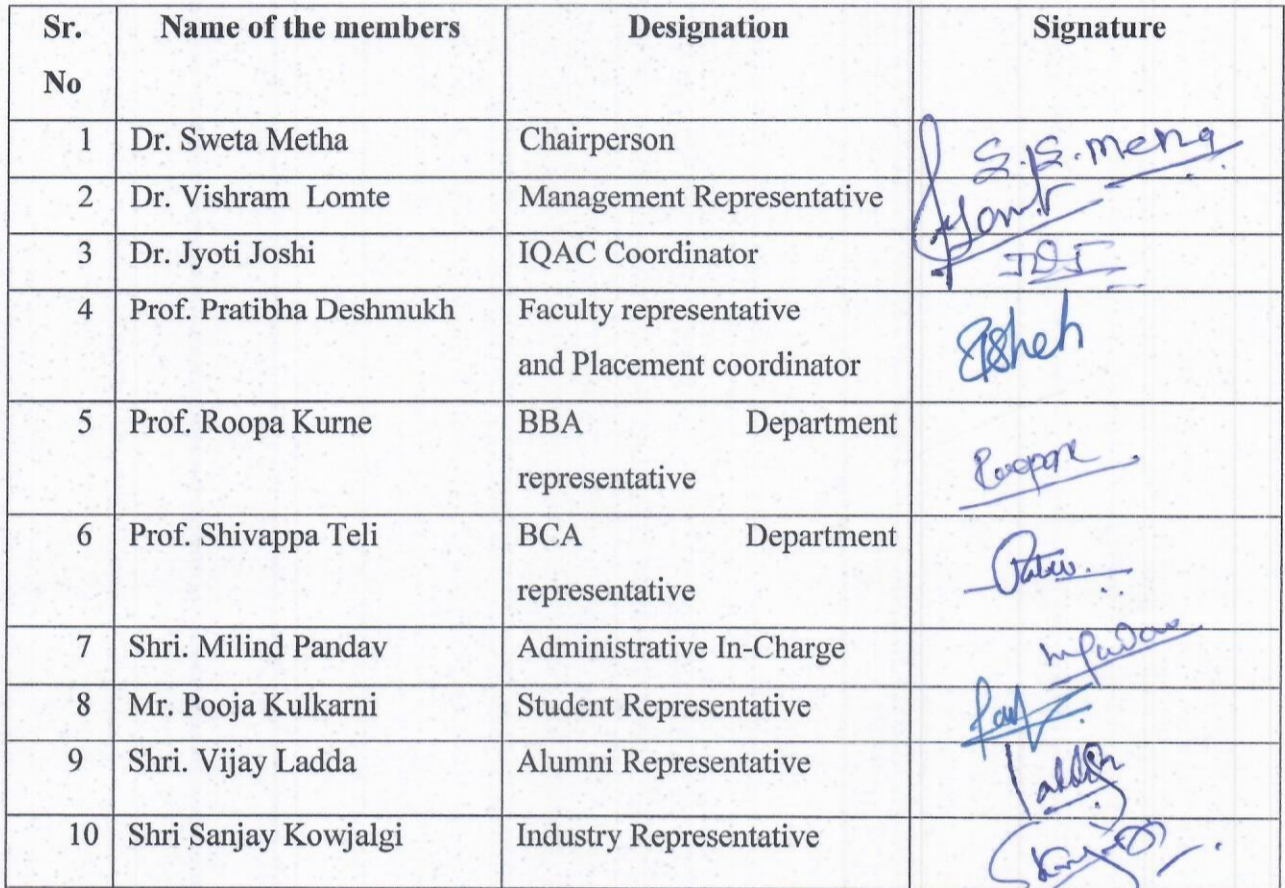 Sr. No Name of the members Designation Signature
1 Dr. Sweta Metha Chairperson S.S. Meng
2 Dr. Vishram Lomte Management Representative
3 Dr. Jyoti Joshi IQAC Coordinator
4 Prof. Pratibha Deshmukh Faculty representative
and Placement coordinator
5 Prof. Roopa Kurne BBA Department
representative
6 Prof. Shivappa Teli BCA Department
representative
7 Shri. Milind Pandav Administrative In-Charge
8 Mr. Pooja Kulkarni Student Representative
9 Shri. Vijay Ladda Alumni Representative
10 Shri Sanjay Kowjalgi Industry Representative